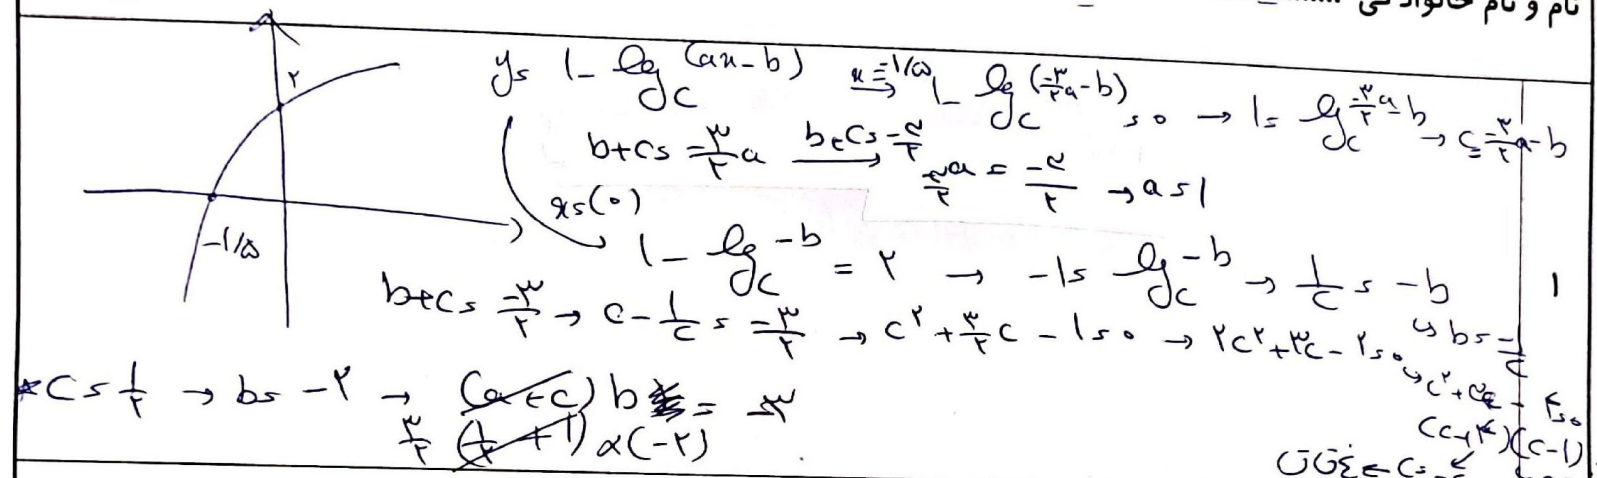 نام و نام خانوادگی
۲
y = 1 - log_c (ax - b) x = -۱/۵ → 1 - log_c (-۳/۲ a - b) = 0 → 1 = log_c -۳/۲ a - b → c = -۳/۲ a - b
b + c = -۳/۲ a b + c = -۳/۲ → -۳/۲ a = -۳/۲ → a = 1
x = (0)
-۱/۵
1 - log_c -b = ۲ → -1 = log_c -b → 1/c = -b
۱
b = -1/c
b + c = -۳/۲ → c - 1/c = -۳/۲ → c² + ۳/۲ c - 1 = 0 → ۲c² + ۳c - ۲ = 0
* c = 1/۲ → b = -۲ → (a + c) b = -۳
۳/۲ (1/۲ + 1) × (-۲)
c² + ۳c - ۴ = 0
(c + ۴)(c - 1)